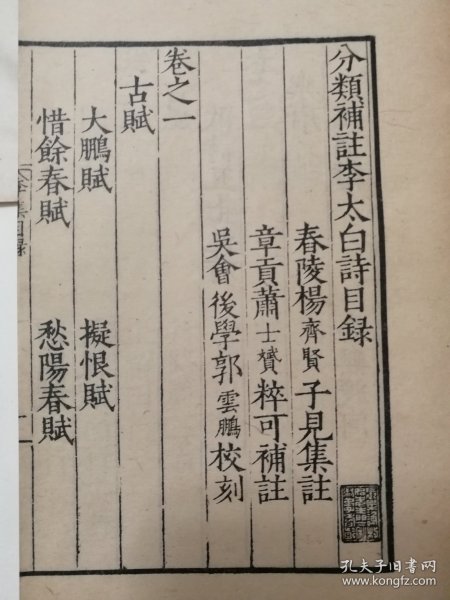 分類補註李太白詩目録
舂陵楊齊賢子見集註
章貢蕭士贇粹可補註
吳會後學郭雲鵬校刻
卷之一
古賦
大鵬賦 擬恨賦
惜餘春賦 愁陽春賦
孔夫子旧书网
www.kongfz.com